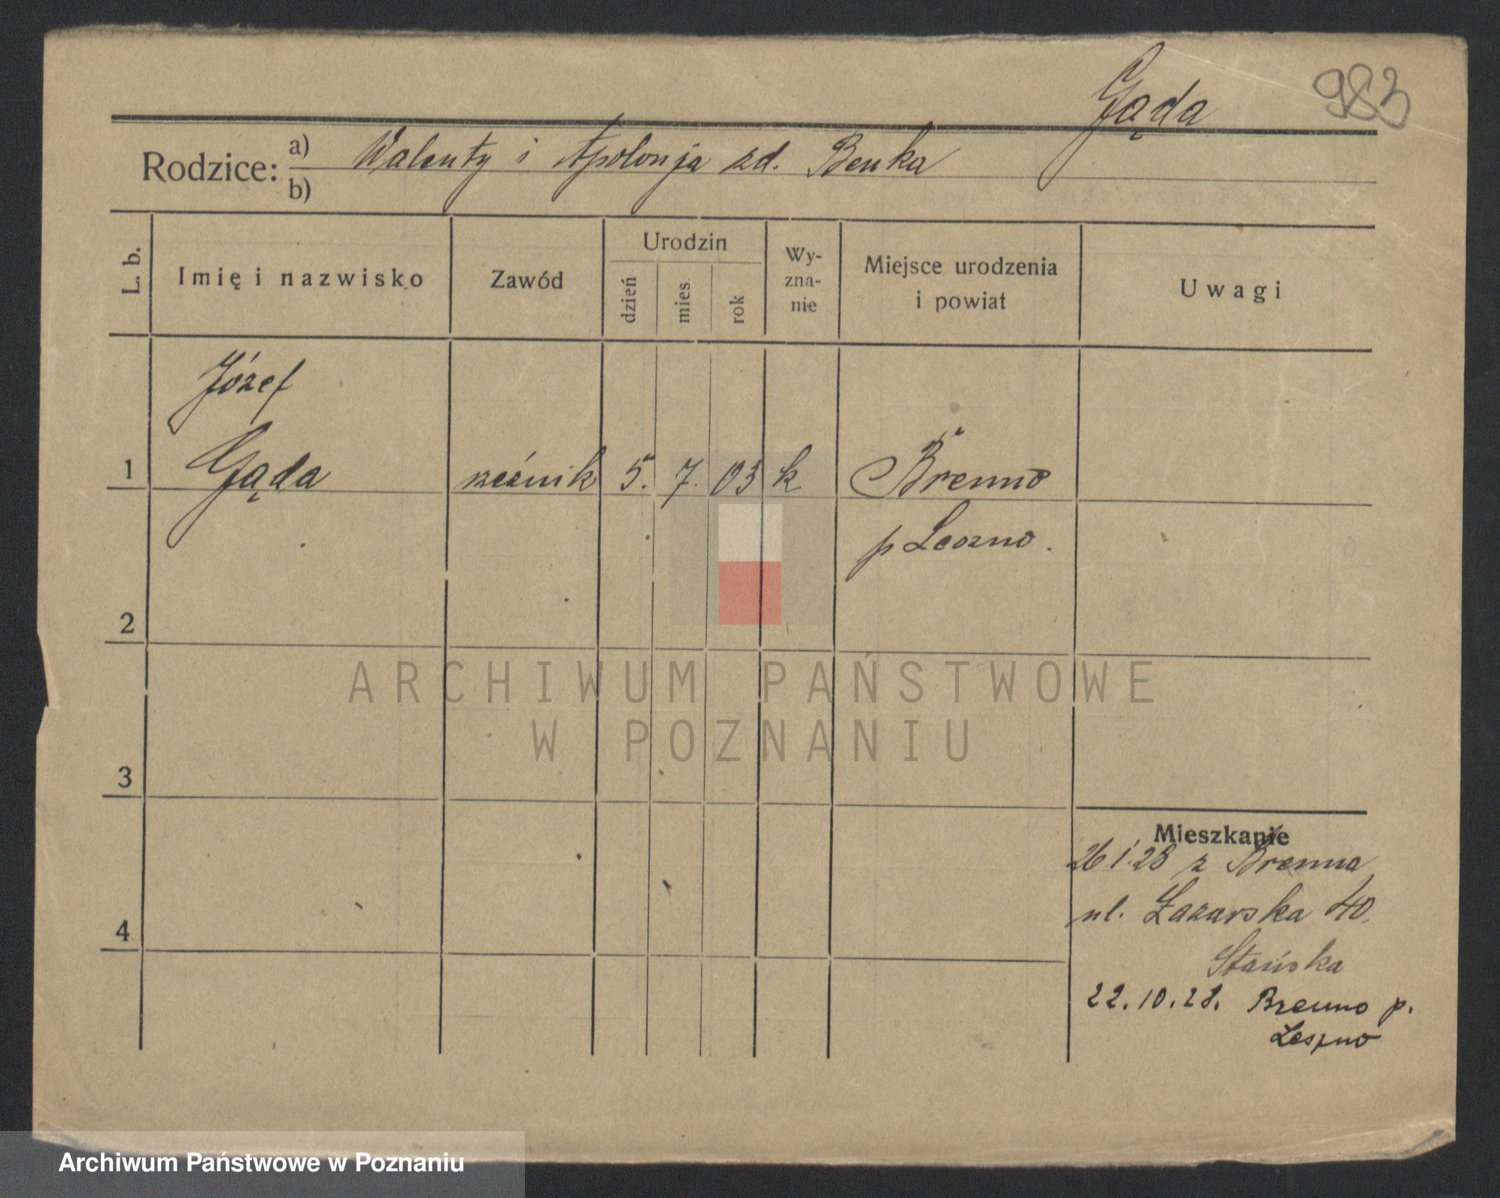 Gąda 983
Rodzice: a) b) Walenty i Apolonja zd. Benka
L. b.
Imię i nazwisko
Zawód
Urodzin
dzień
mies
rok
Wy-
zna-
nie
Miejsce urodzenia
i powiat
Uwagi
Józef
1 Gąda rzeźnik 5. 7. 03 k Brenno
p Leszno.
2
3
4
ARCHIWUM PAŃSTWOWE
W POZNANIU
Mieszkanie
26 1.28 z Brenna
ul. Łazarska 40.
Stańska
22.10.28. Brenno p.
Leszno
Archiwum Państwowe w Poznaniu